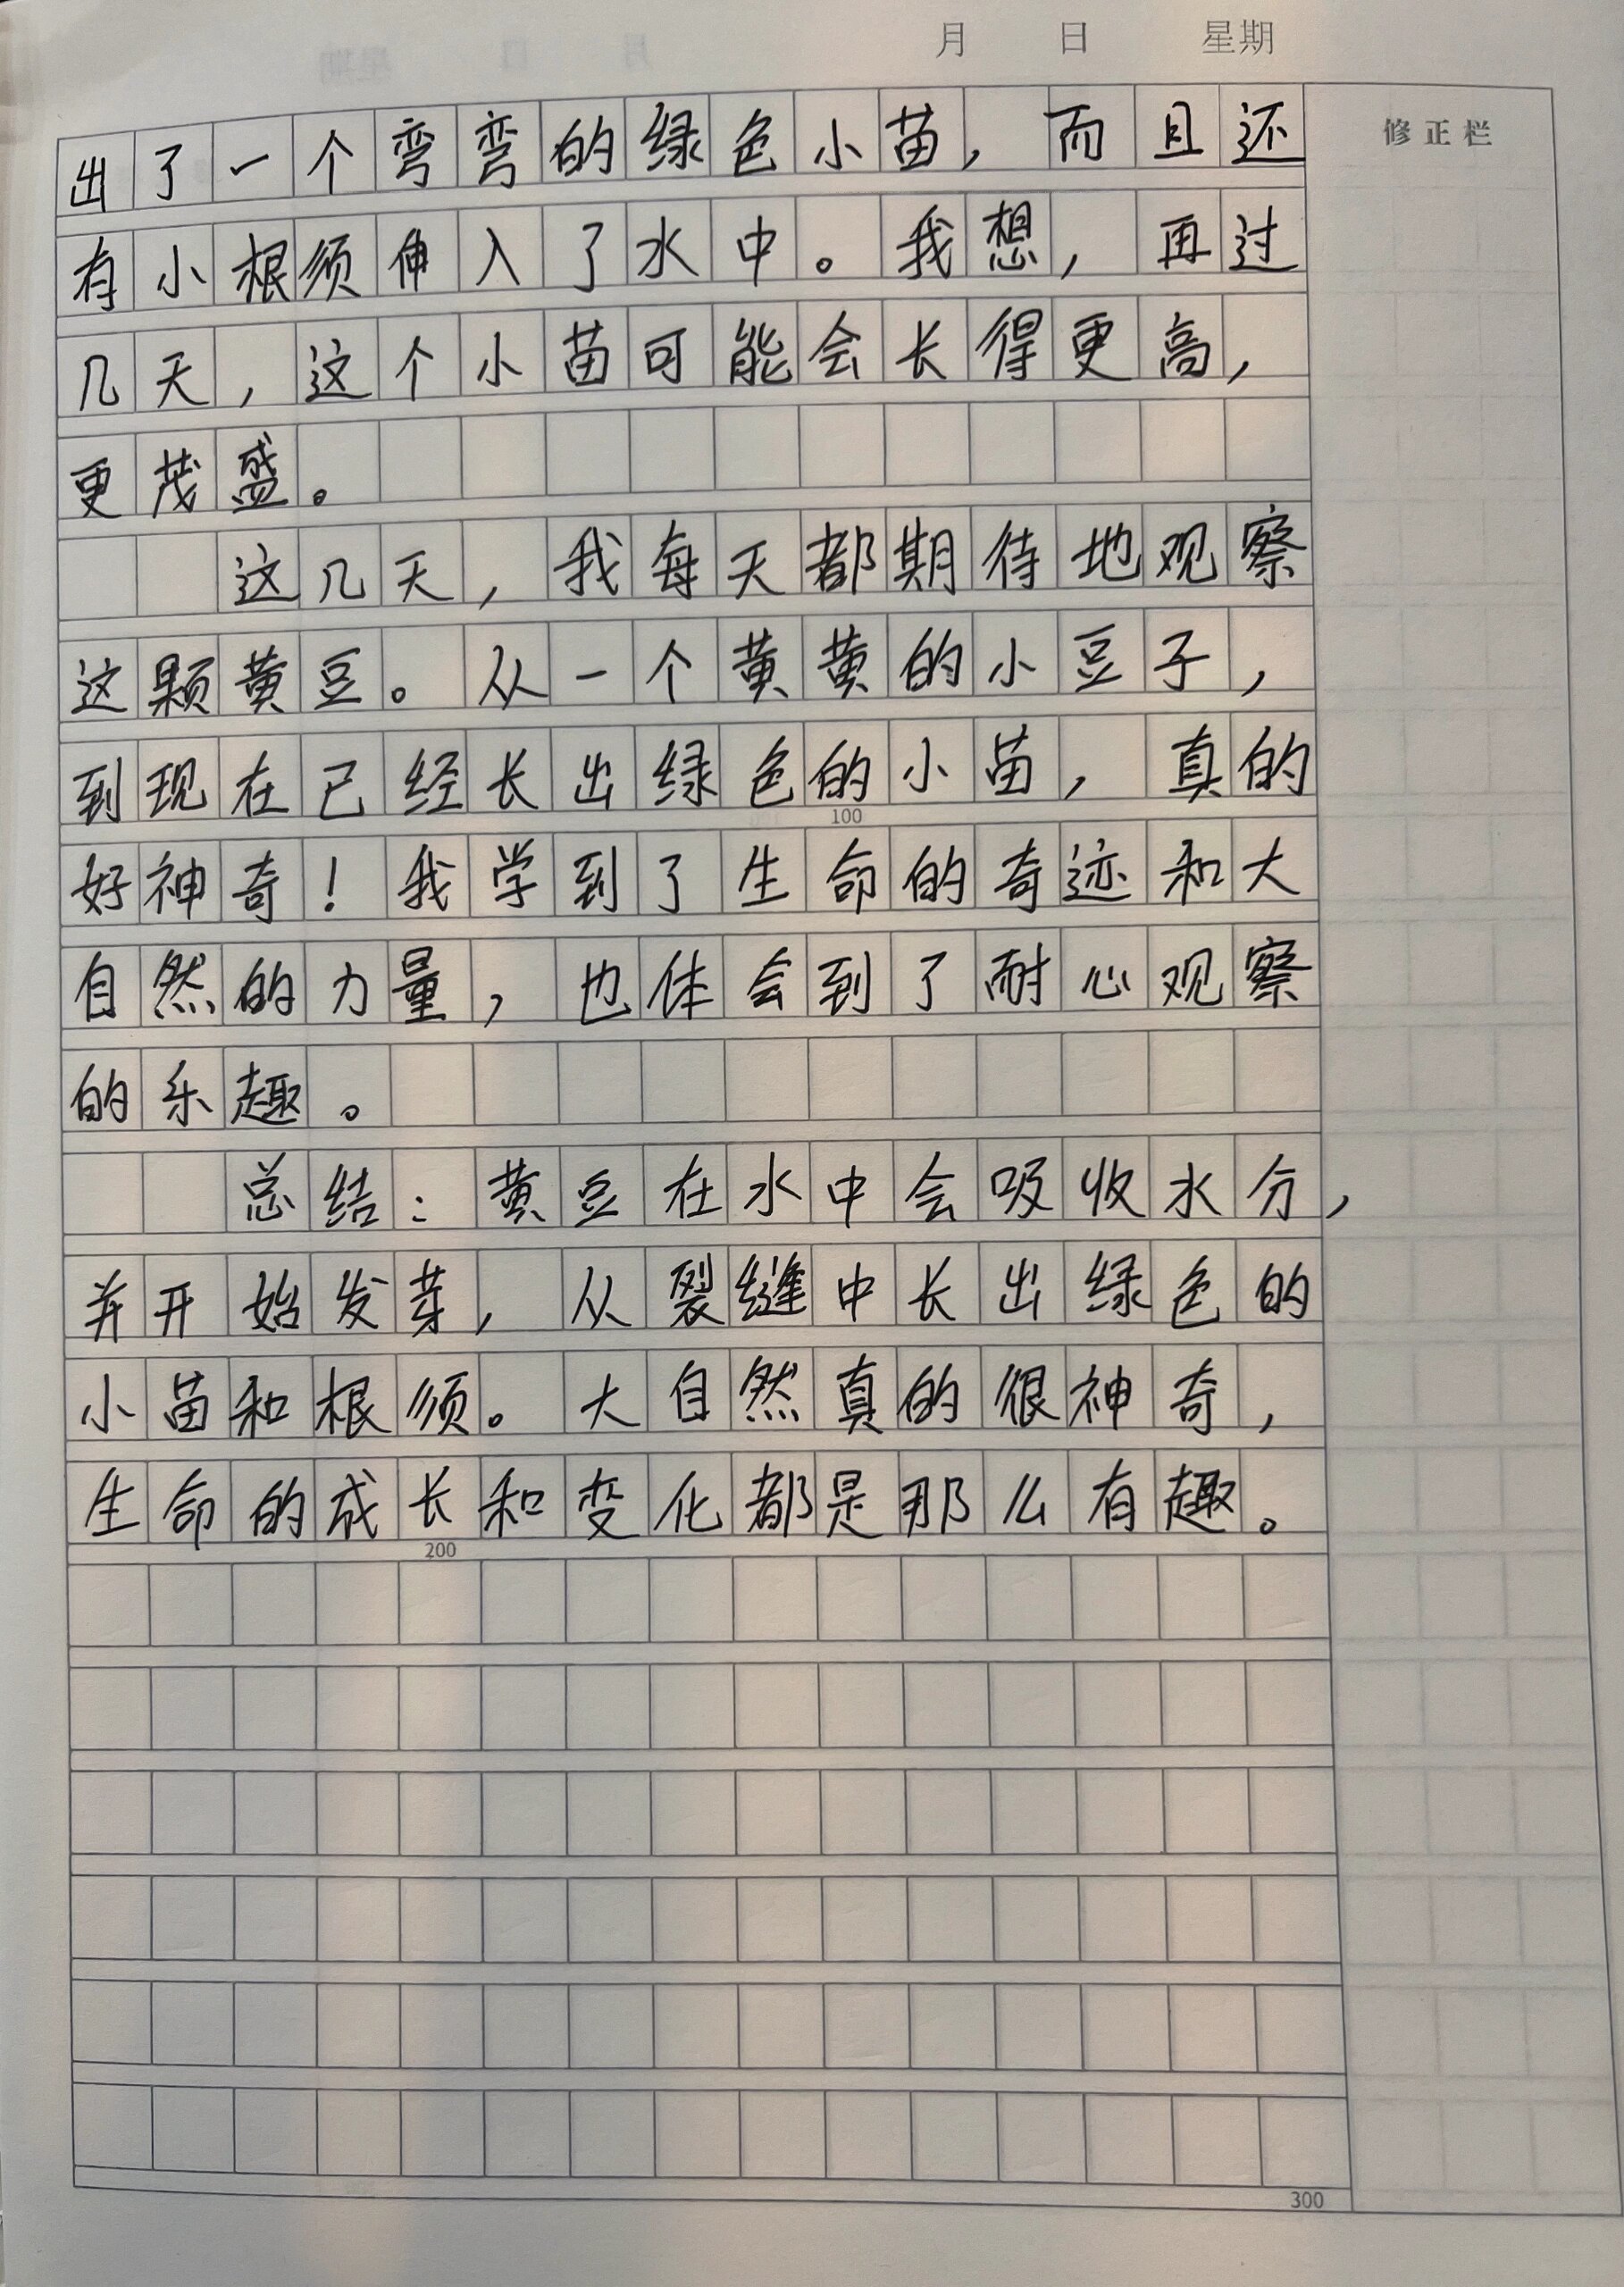 月 日 星期
修正栏
出了一个弯弯的绿色小苗，而且还
有小根须伸入了水中。我想，再过
几天，这个小苗可能会长得更高，
更茂盛。
这几天，我每天都期待地观察
这颗黄豆。从一个黄黄的小豆子，
到现在已经长出绿色的小苗，真的
100
好神奇！我学到了生命的奇迹和大
自然的力量，也体会到了耐心观察
的乐趣。
总结：黄豆在水中会吸收水分，
并开始发芽，从裂缝中长出绿色的
小苗和根须。大自然真的很神奇，
生命的成长和变化都是那么有趣。
200
300